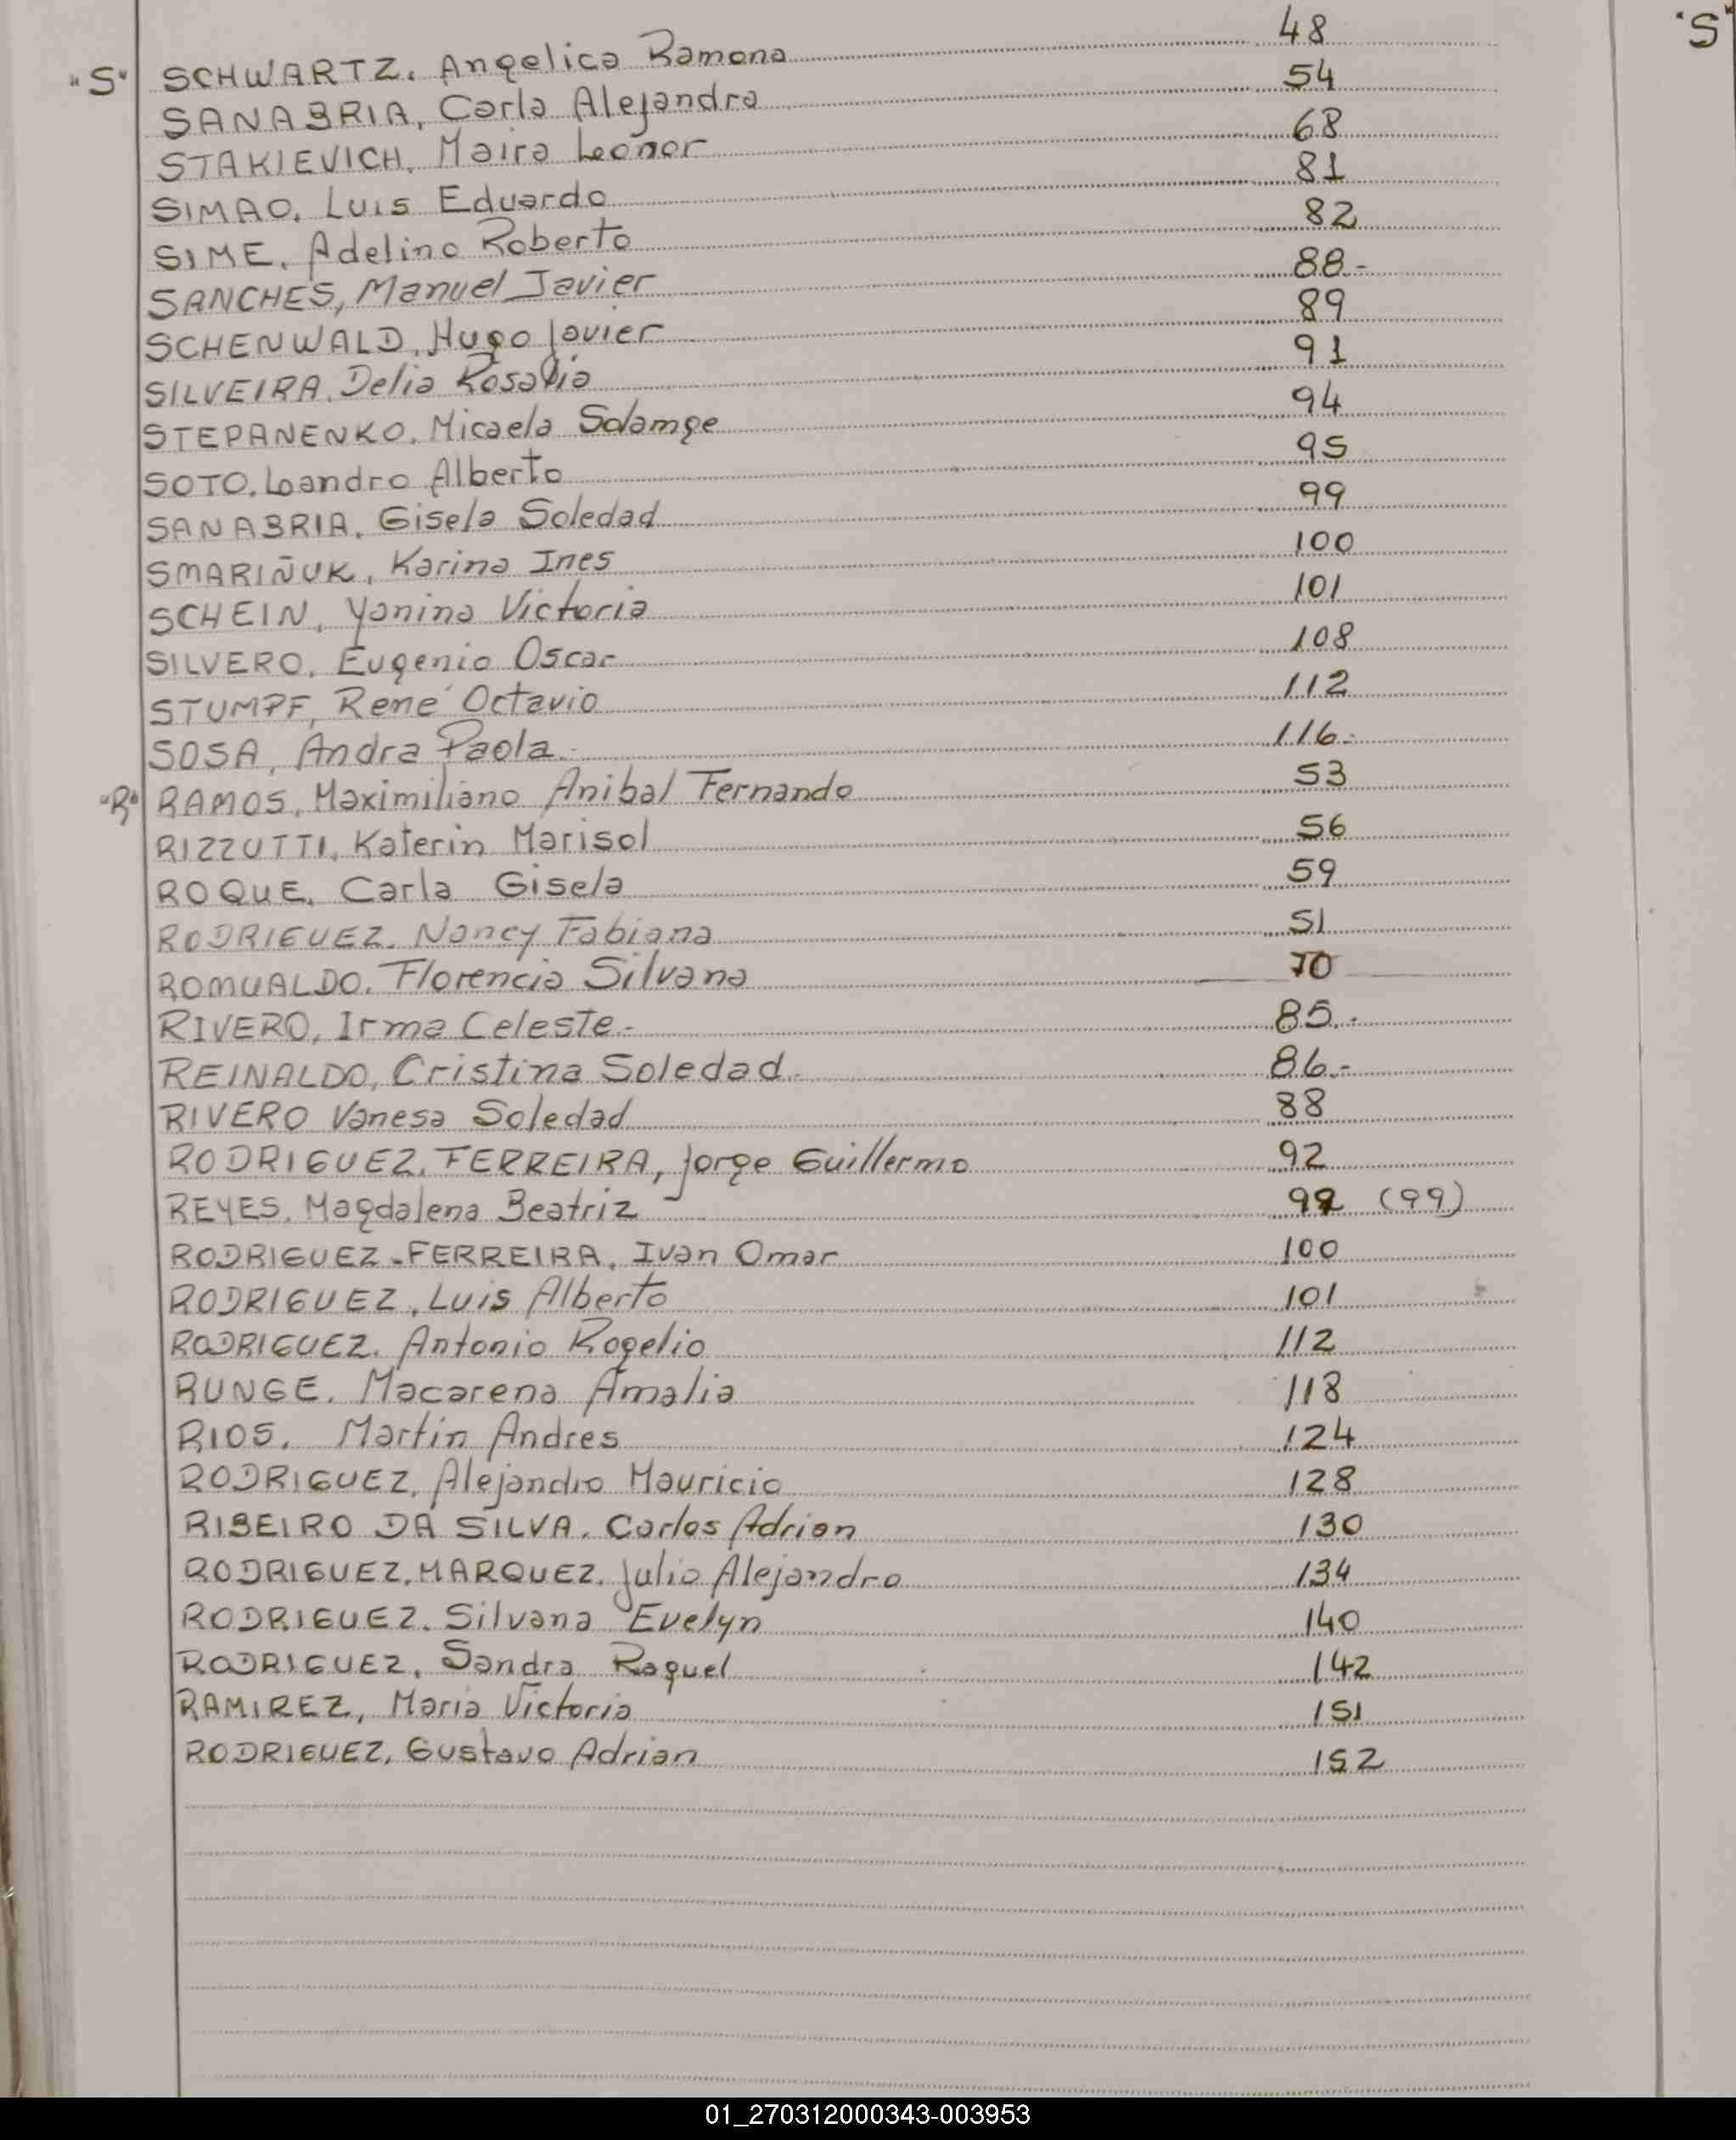 "S" SCHWARTZ. Angelica Ramona 48 "S"
SANABRIA, Carla Alejandra 54
STAKIEVICH, Maira Leonor 68
SIMAO, Luis Eduardo 81
SIME, Adelino Roberto 82
SANCHES, Manuel Javier 88.-
SCHENWALD, Hugo Javier 89
SILVEIRA, Delia Rosalia 91
STEPANENKO, Micaela Solamge 94
SOTO, Leandro Alberto 95
SANABRIA, Gisela Soledad 99
SMARIÑUK, Karina Ines 100
SCHEIN, Yanina Victoria 101
SILVERO, Eugenio Oscar 108
STUMPF, René Octavio 112
SOSA, Andra Paola. 116.-
"R" RAMOS, Maximiliano Anibal Fernando 53
RIZZUTTI, Katerin Marisol 56
ROQUE, Carla Gisela 59
RODRIGUEZ. Nancy Fabiana 51
ROMUALDO. Florencia Silvana 70
RIVERO, Irma Celeste.- 85.-
REINALDO, Cristina Soledad. 86.-
RIVERO Vanesa Soledad 88
RODRIGUEZ, FERREIRA, Jorge Guillermo 92
REYES, Magdalena Beatriz 99 (99)
RODRIGUEZ-FERREIRA, Ivan Omar 100
RODRIGUEZ, Luis Alberto 101
RODRIGUEZ. Antonio Rogelio 112
RUNGE. Macarena Amalia 118
RIOS. Martin Andres 124
RODRIGUEZ, Alejandro Mauricio 128
RIBEIRO DA SILVA, Carlos Adrian 130
RODRIGUEZ, MARQUEZ, Julio Alejandro 134
RODRIGUEZ. Silvana Evelyn 140
RODRIGUEZ, Sandra Raquel 142
RAMIREZ, Maria Victoria 151
RODRIGUEZ, Gustavo Adrian 152
01_270312000343-003953